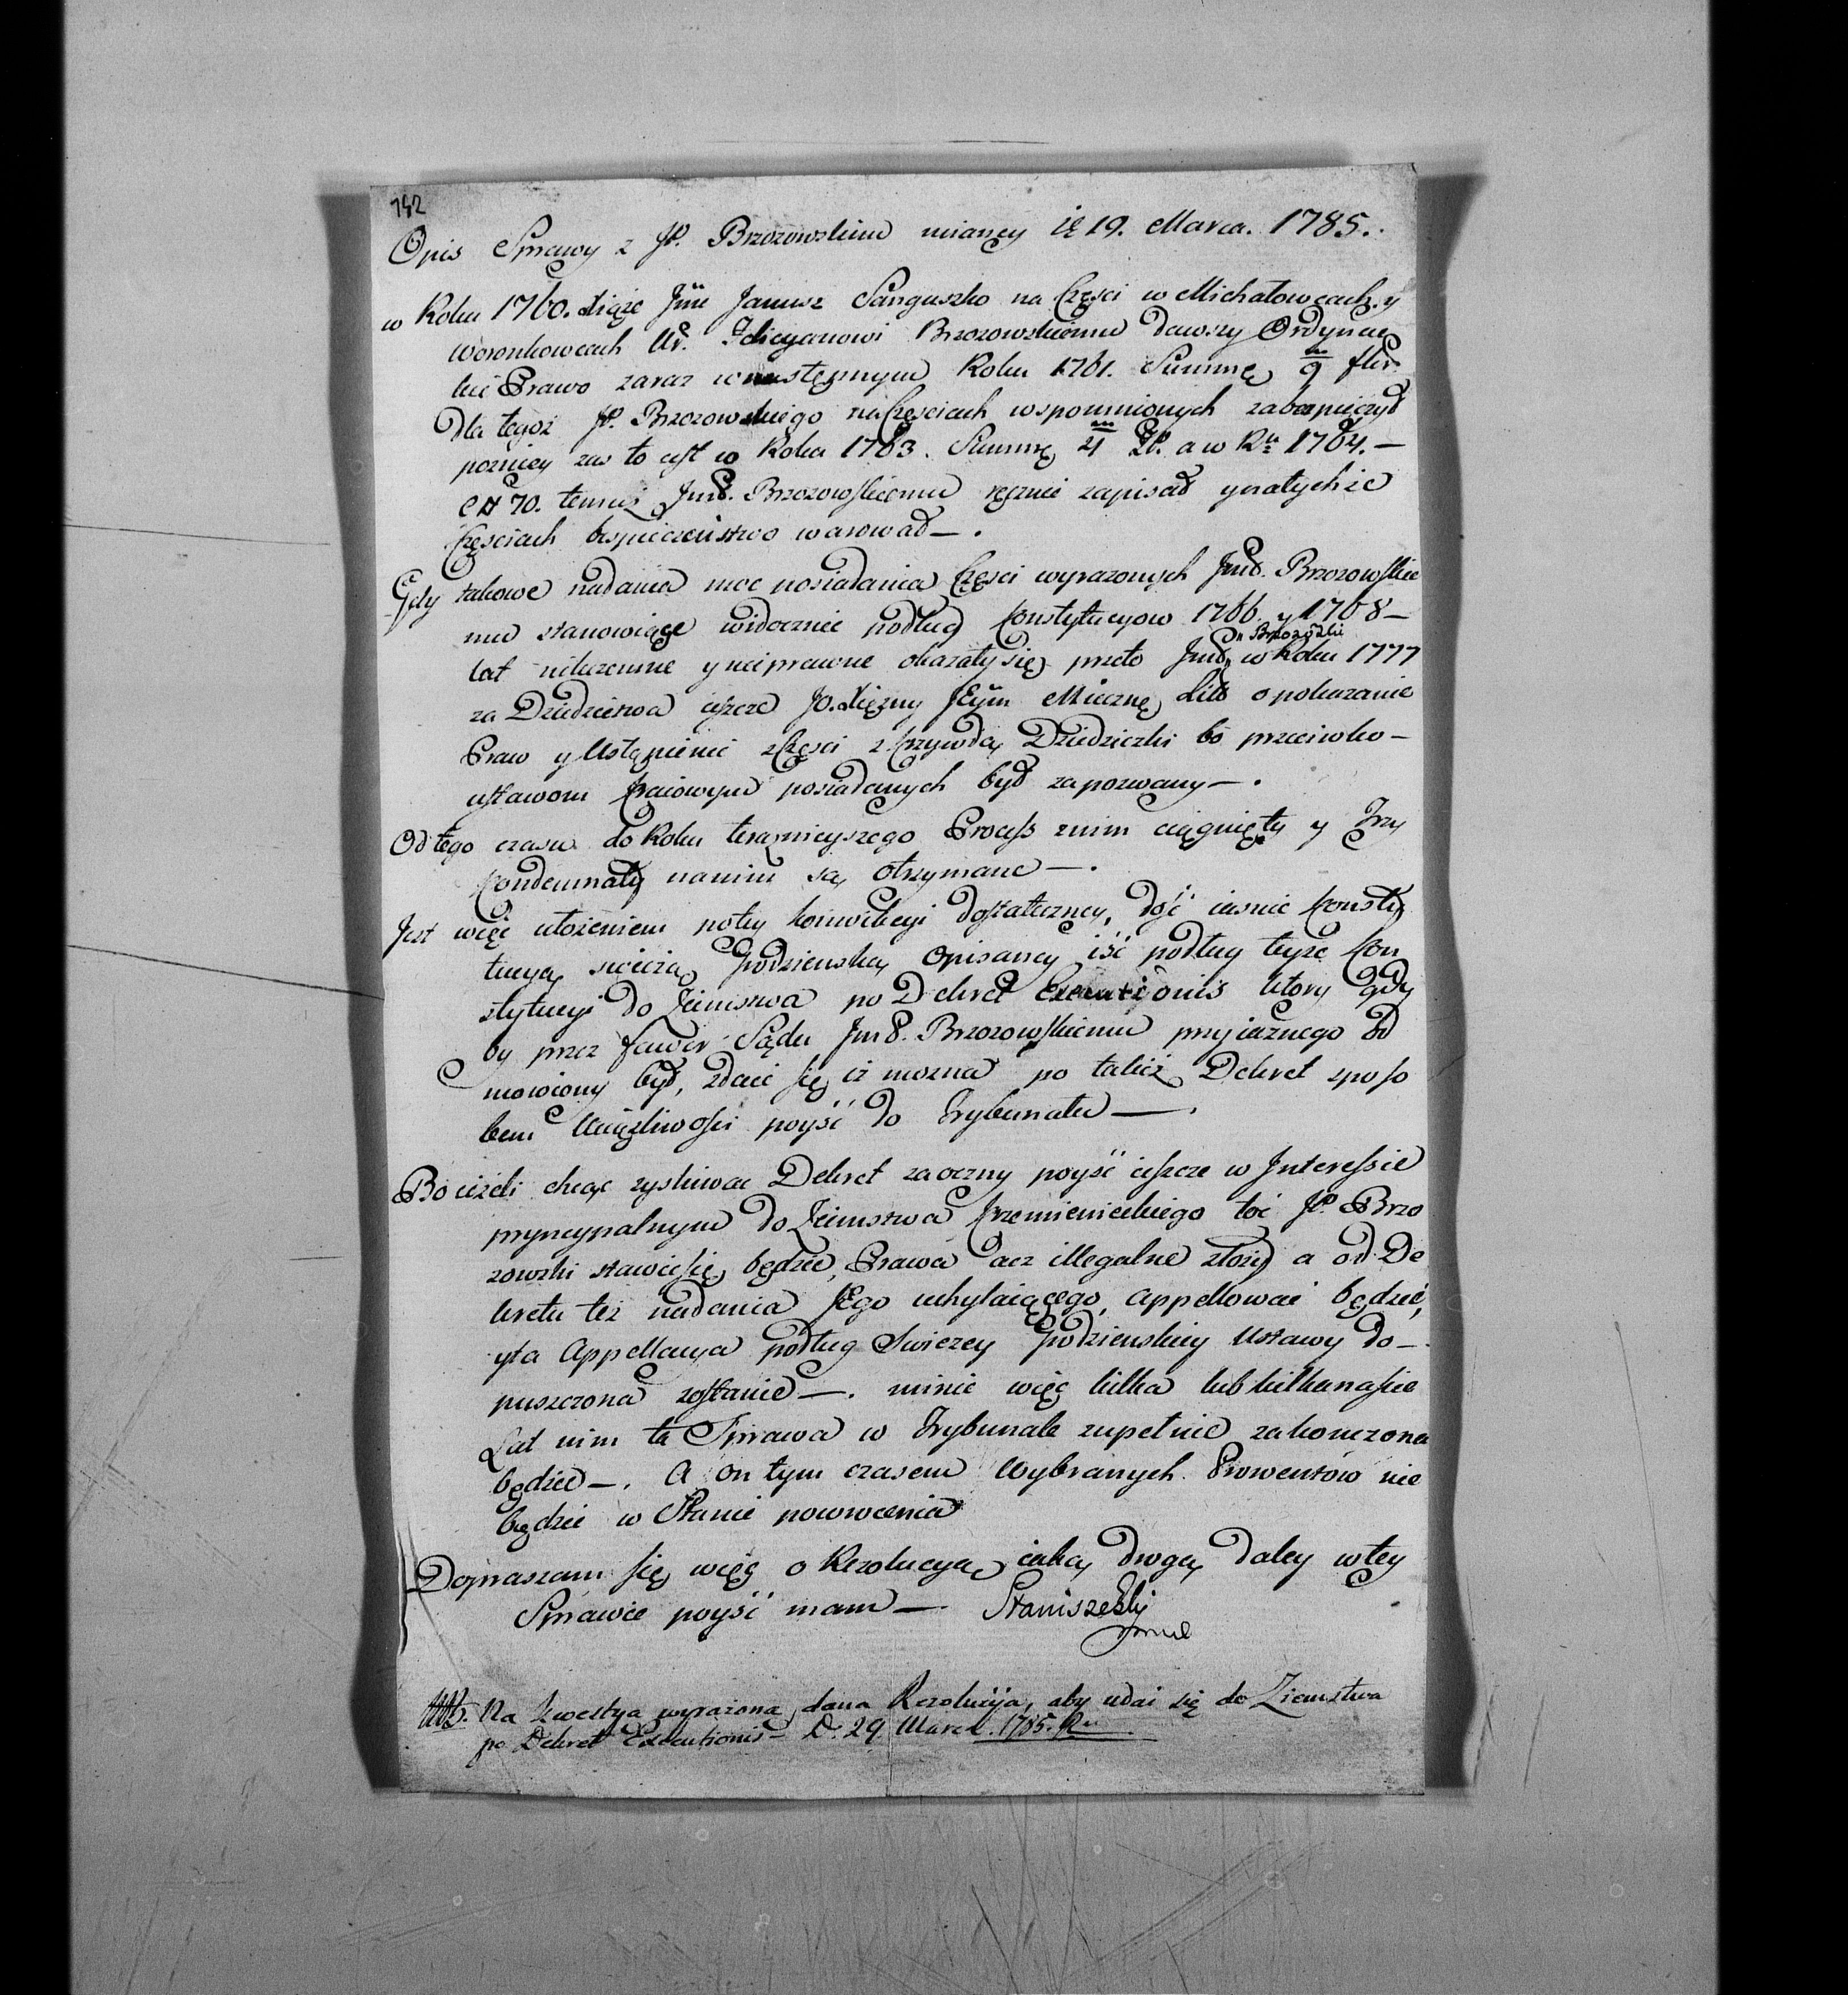 192
Opis Sprawy z JP. Brzozowskim mianey ie 19. Marca. 1785.
w Roku 1760. Xiąże Jmć Janusz Sanguszko na Części w Michałowcach y
Woronkowcach Ur. Felicyanowi Brzozowskiemu dawszy Ordynac
kie Prawo zaraz w następnym Roku 1761. Summę 9 flor.
Dla tegoż JP. Brzozowskiego na Częsciach wspomnionych zabespieczył
pozniey zas to iest w Roku 1763. Summę 4 ZP. a w Ru 1764. —
70. temuż JmP. Brzozowskiemu ręcznie zapisał y na tychże
Częsciach bespieczeństwo warował — .
Gdy takowe nadania moc posiadania Częsci wyrazonych JmP. Brzozowskie
mu stanowiące widocznie podług Konstytucyow 1766. y 1768 —
lat nikczemne y nieprawne okazały się, przeto JmP. " Brzozowski w Roku 1777
za Dziedzictwa ieszcze JO. Xiężny JEym Mieczne Lit o pokazanie
Praw y Ustąpienie z Częsci z krzywdą Dziedziczki bo przeciwko —
ustawom kraiowym posiadanych był zapozwany — .
Od tego czasu do Roku teraznieyszego Process z nim ciągnięty y Trzy
Kondemnaty na nim są otrzymane — .
Jest więc ułożeniem poley konwikcyi dostateczney, dość iasnie Konsty
tucyą swieżą Grodzienską Opisaney iść podług teyże Kon
stytucyi do Ziemstwa po Dekret Executionis ktory gdy
by przez fawor Sądu JmP. Brzozowskiemu przyiaznego od
mowiony był, zdaie się iż mozna po takiż Dekret sposo
bem Uciążliwości poyść do Trybunału — .
Bo ieżeli chcąc zyskiwac Dekret zaoczny poyść ieszcze w Interessie
pryncypalnym do Ziemstwa Krzemienieckiego toć JP. Brzo
zowski stawić się będzie, Prawa acz illegalne złoży a od De
kretu też nadania Jego uchylaiącego, appellować będzie,
y ta Appellacya podług Swiezey Grodzienskiey Ustawy do —
puszczona zostanie — . minie więc kilka lub kilkanaście
Lat nim ta Sprawa w Trybunale zupełnie zakonczona
będzie — . A on tym czasem Wybranych Prowentów nie
będzie w Stanie powrocenia
Dopraszam się więc o Rezolucyą iaką drogą daley w tey
Sprawie poyść mam — . Staniszewski
NB. Na kwestya wyrażoną dana Rezolucija, aby udać się do Ziemstwa
po Dekret Executionis — D. 29 Marca. 1785. Ru